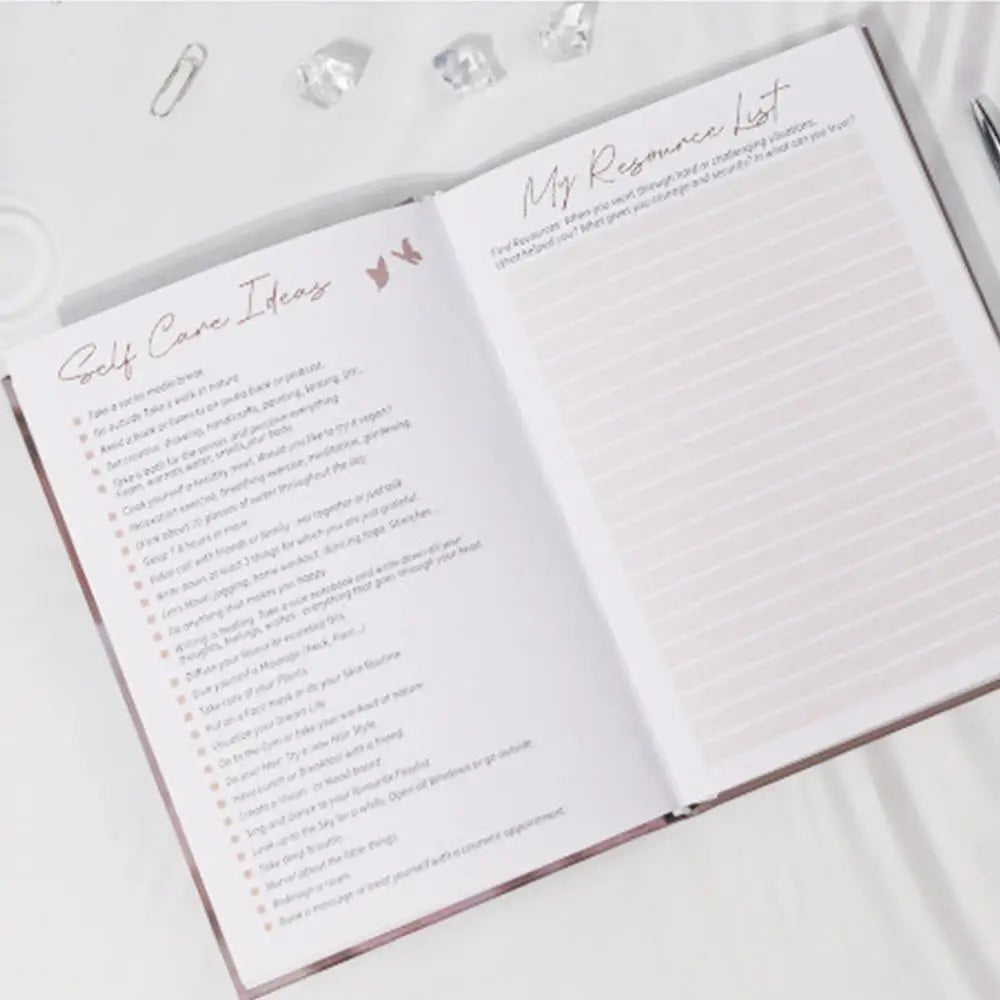 Self Care Ideas
Take a social media break
Go outside. Take a walk in nature
Read a book or listen to an audio book or podcast.
Get creative: drawing, handicrafts, painting, knitting, DIY..
Take a bath for the senses and perceive everything
Foam, warmth, water, smells, your body.
Cook yourself a healthy meal. Would you like to try it vegan?
Relaxation exercise, breathing exercise, meditation, gardening
Drink about 10 glasses of water throughout the day.
Sleep 7-8 hours or more.
Video call with friends or family - eat together or just talk
Write down at least 3 things for which you are just grateful.
Let's Move: jogging, home workout, dancing, Yoga, Stretches...
Do anything that makes you happy.
Writing is healing. Take a nice notebook and write down all your
thoughts, feelings, wishes - everything that goes through your head
Diffuse your favourite essential Oils
Give yourself a Massage (Neck, Feet...)
Take care of your Plants
Put on a Face mask or do your Skin Routine
Visualize your Dream Life
Go to the Gym or take your workout at nature.
Do your Hair. Try a new Hair Style.
Have Lunch or Breakfast with a Friend
Create a Vision- or Mood board
Sing and Dance to your favourite Playlist
Look up to the Sky for a while. Open all Windows or go outside.
Take deep Breaths.
Marvel about the little things.
Redesign a room
Book a massage or treat yourself with a cosmetic appointment
My Resource List
Find Resources: When you went through hard or challenging situations,
What helped you? What gives you courage and security? In what can you trust?